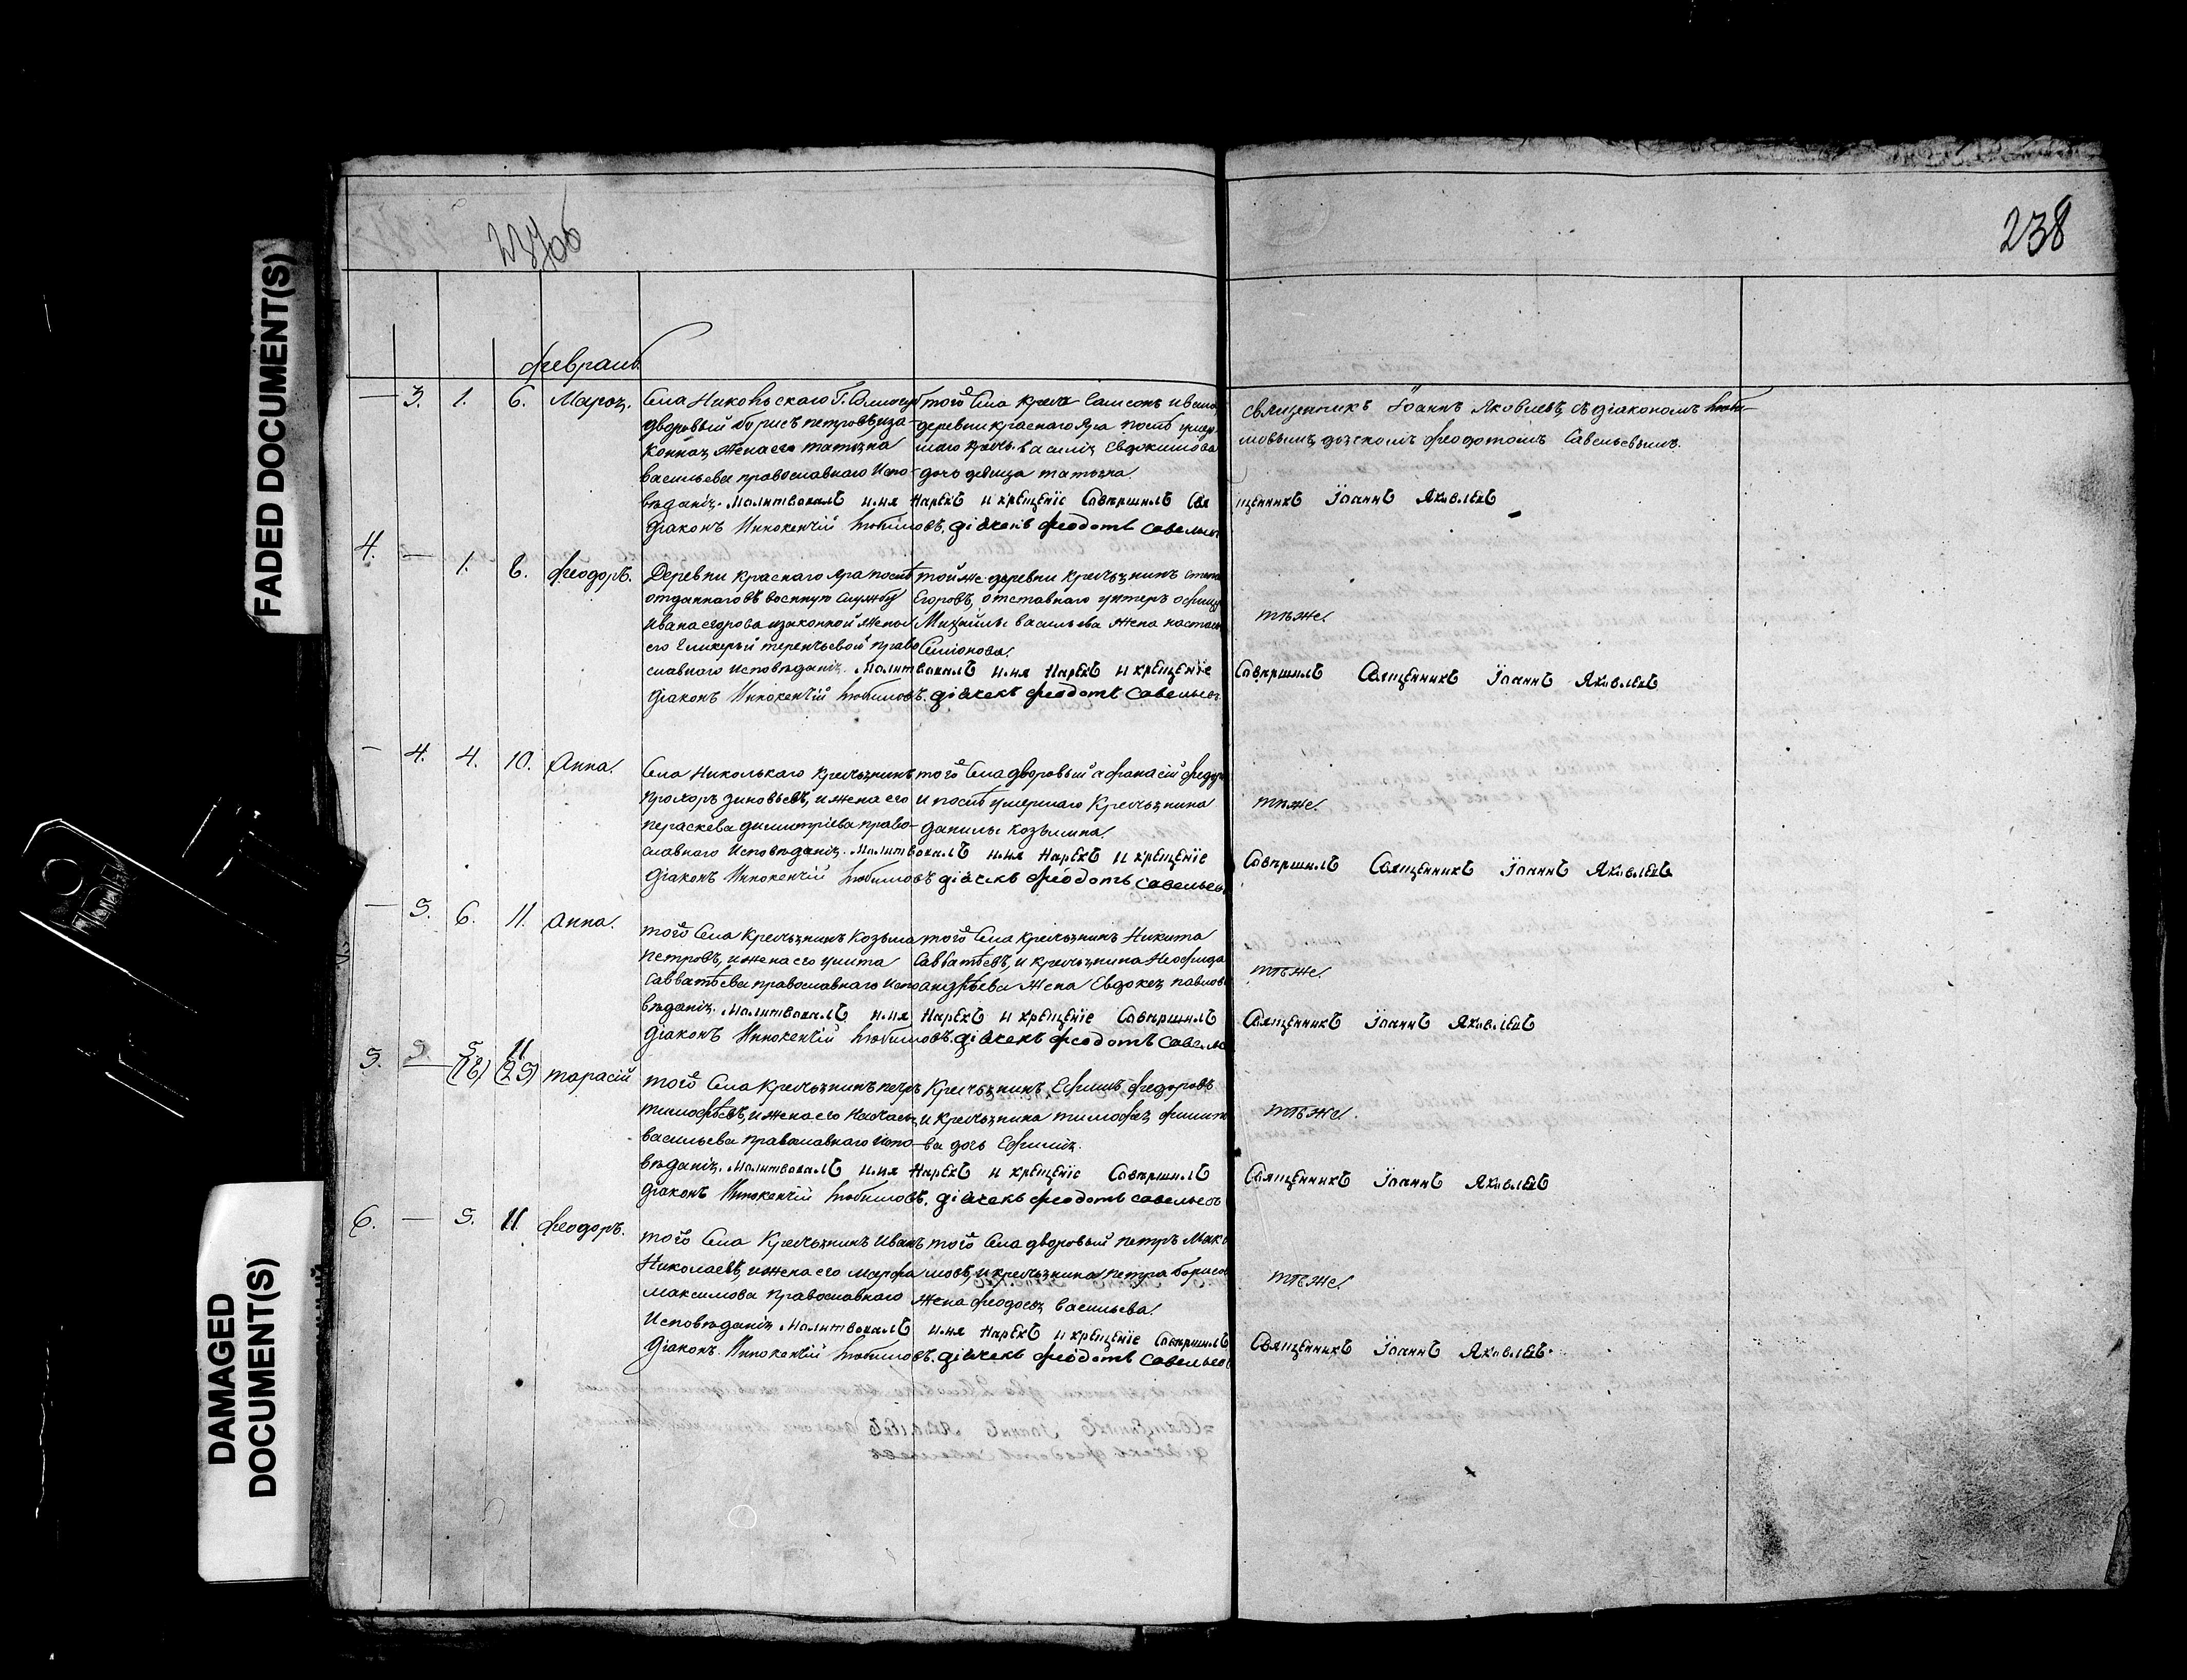 FADED DOCUMENT(S)
DAMAGED
DOCUMENT(S)
237об
238
Февраль
— 3. 1. 6. Марѳ
Села Никольскаго Г.
дворовый борисъ петровъ, иза-
конная жена его татьяна
васильева православнаго Испо-
вѣданія. Молитвовалъ имя Нарекъ и крещенїе Совершилъ Свя
щенникъ Їоаннъ Яковлевъ
Дїаконъ Иннокентїй Любимовъ. дїячекъ феодотъ савельев
того Села кресть Самсонъ ивано
деревни краснаго Яра послѣ умер-
шаго крест. василія Евдокимова
дочь дѣвица татьяна.
священникъ Їоаннъ Яковлевъ, съ дїакономъ Люби-
мовымъ, дьячкомъ феодотомъ Савельевымъ.
4. — 1. 6. Феодоръ.
Деревни краснаго Яра послѣ
отданнаго въ военную службу
ивана егорова изаконной жены
его гликерьи терентьевой право
славнаго исповѣданія. Молитвовалъ имя Нарекъ и крещенїе
Совершилъ Священникъ Їоаннъ Яковлевъ
Дїаконъ Иннокентїй Любимовъ. дїячекъ феодотъ савельевъ
той же деревни крестьянинъ степа
Егоровъ, отставнаго унтеръ офице
Михайлы васильева жена настась
Симонова.
тѣже.
— 4. 4. 10. Анна.
Села Николькаго крестьянинъ
прохоръ зиновьевъ, и жена его
параскева димитрїева право-
славнаго Исповѣданія. Молитвовалъ имя Нарекъ и крещенїе
Совершилъ Священникъ Їоаннъ Яковлевъ
Дїаконъ Иннокентїй Любимовъ дїячекъ феодотъ савельевъ
того Села дворовый афанасїй федор
и послѣ умершаго Крестьянина
данилы козьмина.
тѣже.
— 5. 6. 11. Анна.
того Села крестьянинъ козьма
петровъ, и жена его улита
савватѣева православнаго испо
вѣданія. Молитвовалъ имя Нарекъ и крещенїе Совершилъ
Священникъ Їоаннъ Яковлевъ
Дїаконъ Иннокентїй Любимовъ. дїячекъ феодотъ савель
того Села крестьянинъ Никита
Савватѣевъ, и крестьянина
андрѣева жена Евдокея павлов
тѣже.
5. — 5. 11
(25) тарасїй
того Села крестьянинъ петръ
тимофѣевъ, и жена его настась
васильева православнаго испо-
вѣданія. Молитвовалъ имя Нарекъ и крещенїе Совершилъ
Священникъ Їоаннъ Яковлевъ
Дїаконъ Иннокентїй Любимовъ. дїячекъ феодотъ савельевъ
Крестьянинъ Ефимъ федоровъ
и крестьянина тимофея филип
ва дочь Ефимія.
тѣже.
6. — 5. 11. Феодоръ.
того Села Крестьянинъ Иванъ
Николаевъ, и жена его марфа
максимова православнаго
Исповѣданія Молитвовалъ имя Нарекъ и крещенїе Совершилъ
Священникъ Їоаннъ Яковлевъ.
Дїаконъ. Иннокентїй Любимовъ. дїячекъ феодотъ савельев
того Села дворовый петръ мак
мовъ, и крестьянина петра борисов
жена феодосья васильева.
тѣже.